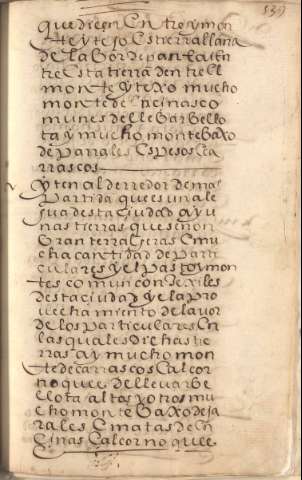 539
que dicen Entre y mon
te y tejo Es tierra llana
de labor de pan Enen
tre Esta tierra dentre El
monte y texo mucho
monte de Encinas co
munes de lle bar bello
ta y mucho monte baxo
de parrales Espesos Ca
rrascos
yten al derredor de mas
Partida que es un ale
gua desta ciudad ay u
nas tierras que son
Gran terral Eras E mu
cha cantidad de parti
culares y El pasto y mon
tes comun con Jexiles
desta ciudad y el a pro
uechamiento de lauor
de los particulares En
las quales dichas tie
rras ay mucho mon
te de carrascos alcor
noques de lleuar be
llota altos y otros mu
cho monte baxo de ja
rales E matas de En
cinas alcornoques